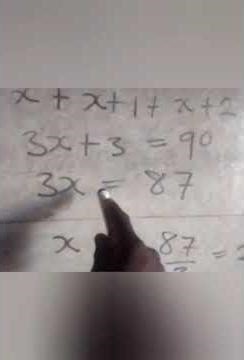 x + x+1 + x+2
3x+3 = 90
3x = 87
x 87 =